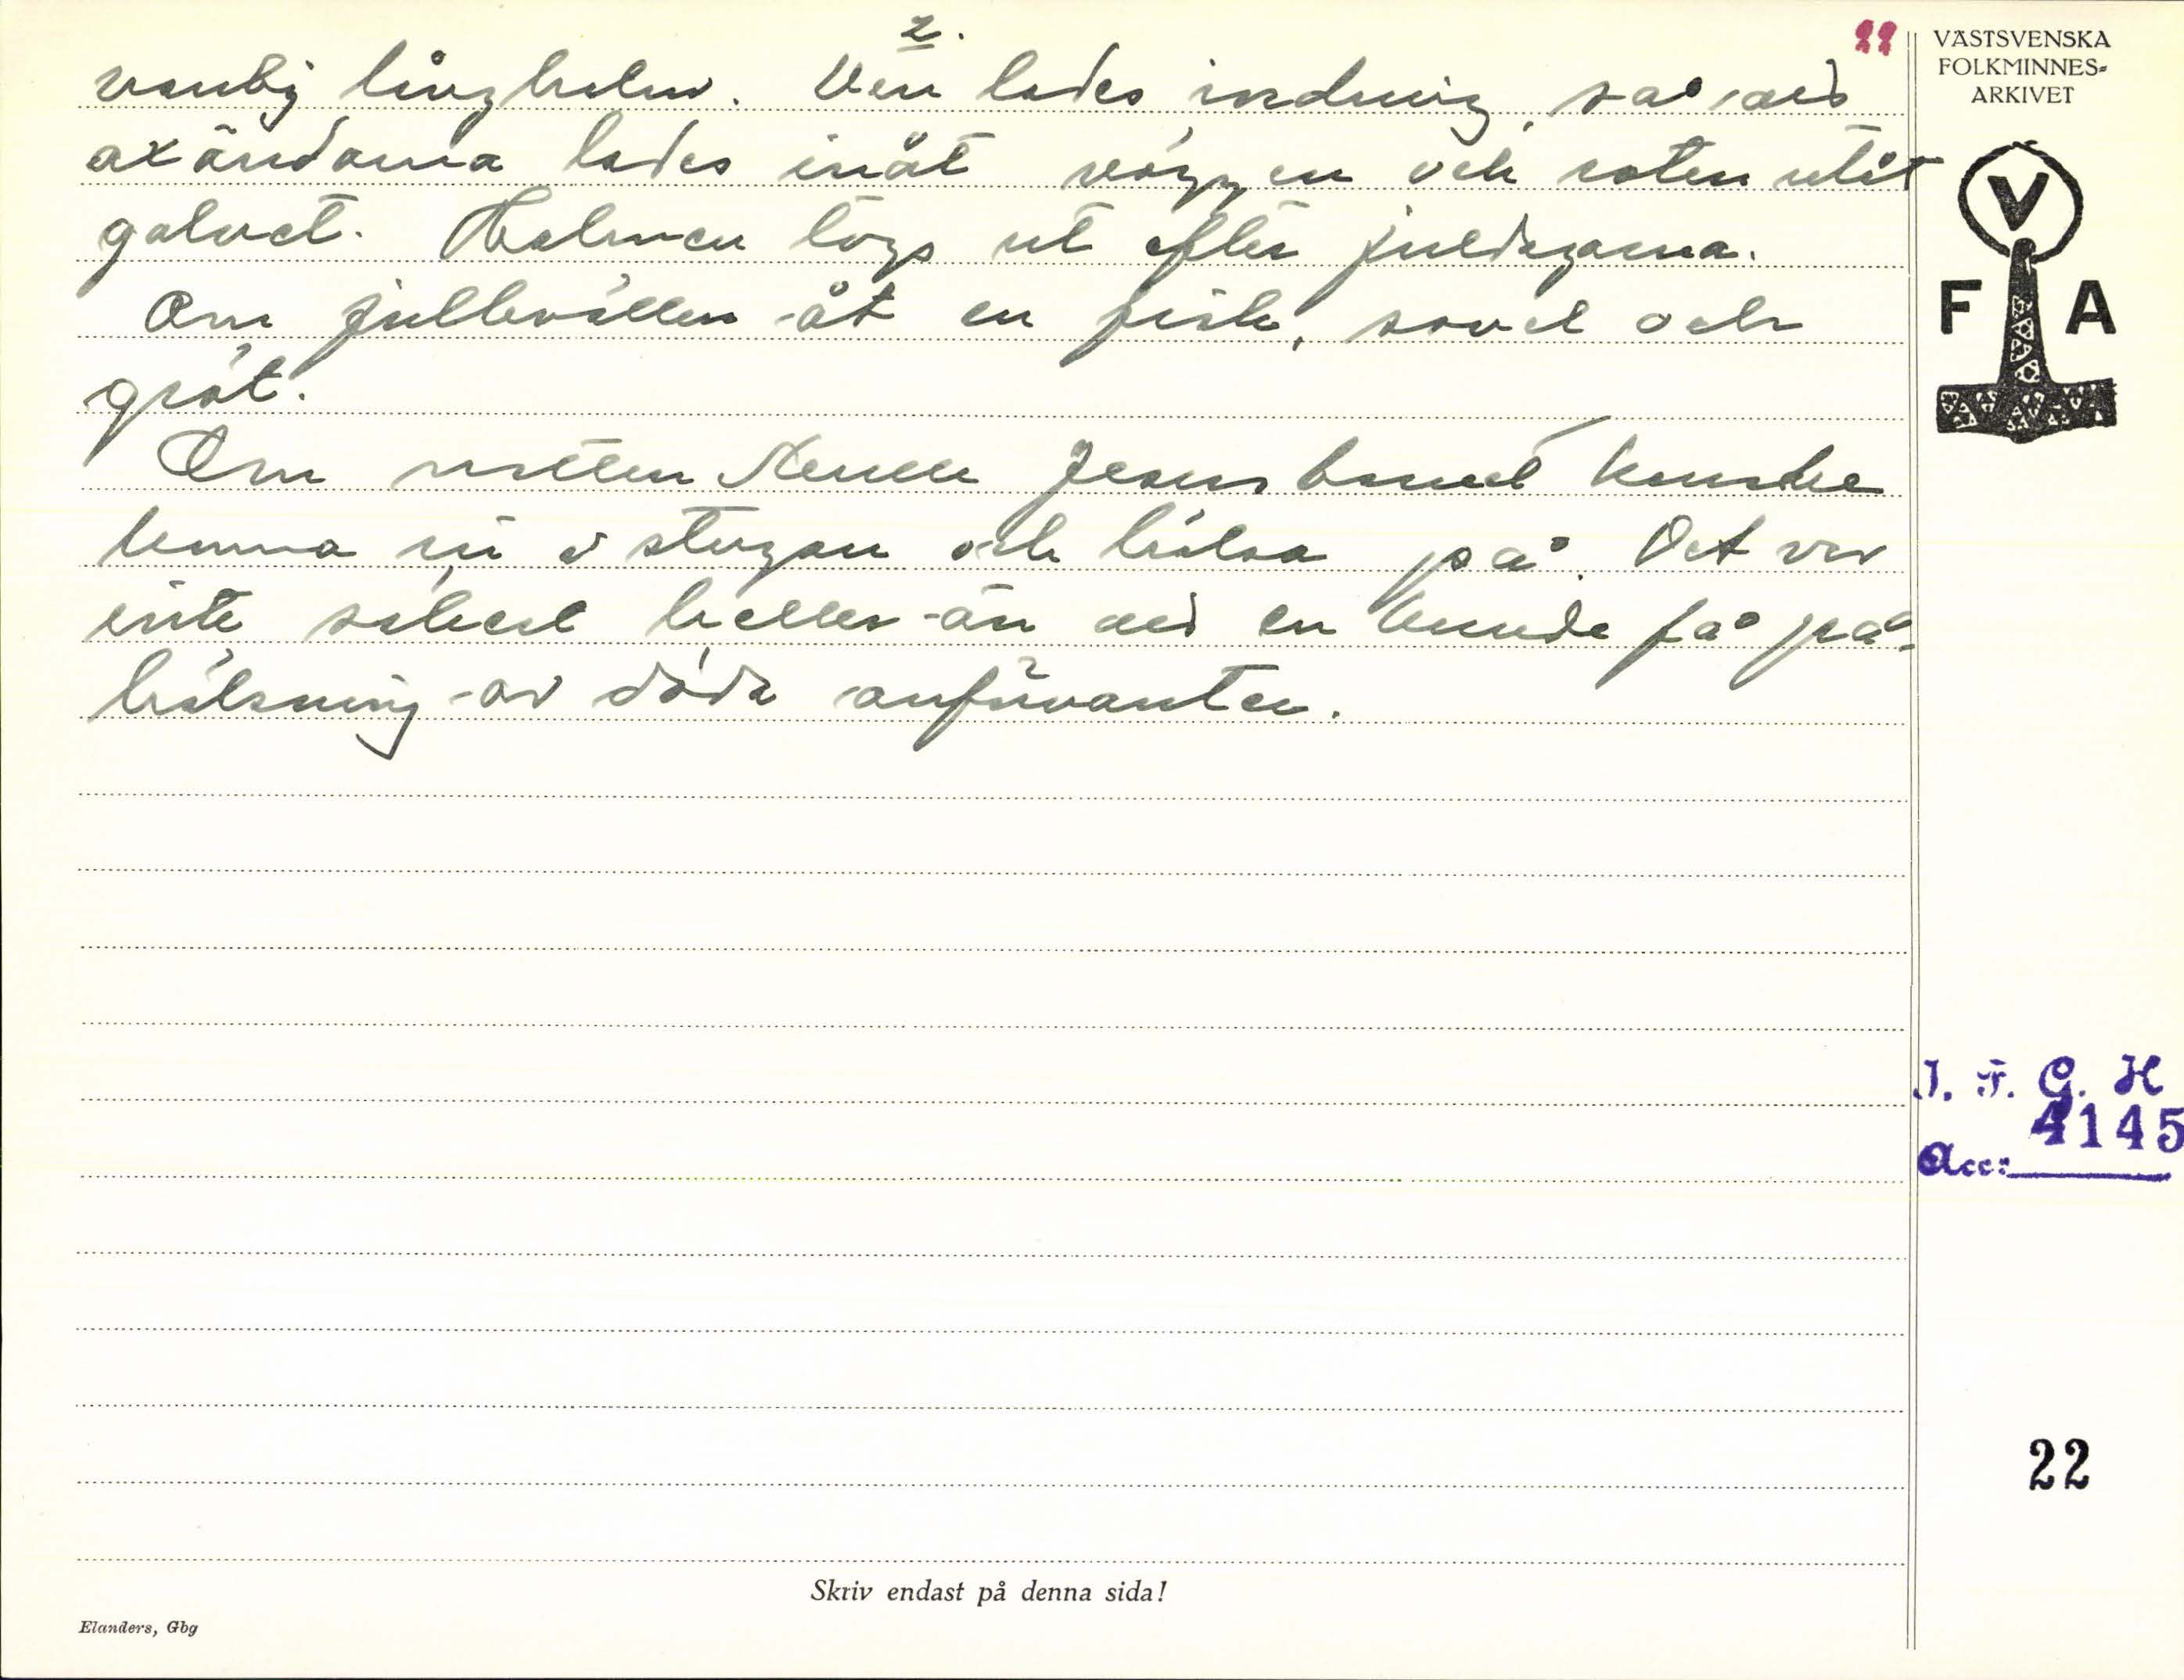 2.
22
vanlig långhalm. Den lades indunig, så att
axändarna lades inåt väggen och roten utåt
golvet. Halmen togs ut efter juldagarna.
Om julkvällen åt en fisk, sovel och
gröt.
Om natten skulle Jesusbarnet kanske
komma in i stugan och hälsa på. Det var
inte säkert heller än att en kunde få på-
hälsning av döda anförvanter.
VÄSTSVENSKA
FOLKMINNES-
ARKIVET
V
F A
I. F. G. H
4145
Acc:
22
Skriv endast på denna sida!
Elanders, Gbg